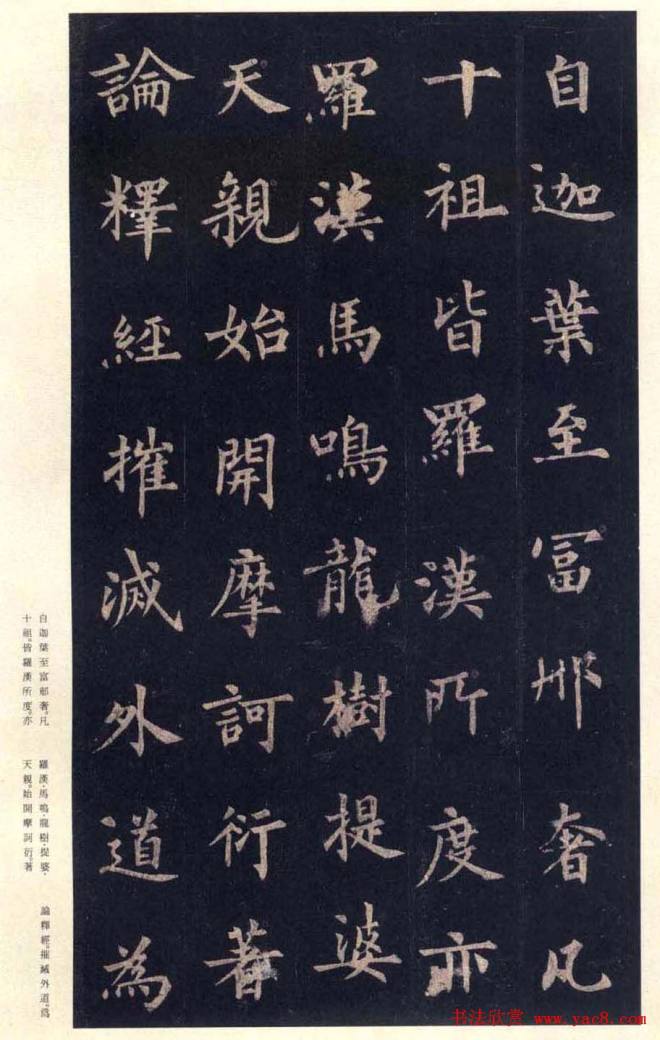 自迦葉至冨那奢凡
十祖皆羅漢所度亦
羅漢馬鳴龍樹提婆
天親始開摩訶衍著
論釋經摧滅外道為
自迦葉至富那奢。凡
十祖。皆羅漢所度。亦
羅漢·馬鳴·龍樹·提婆·
天親。始開摩訶衍。著
論釋經。摧滅外道。爲
书法欣赏 www.yac8.com